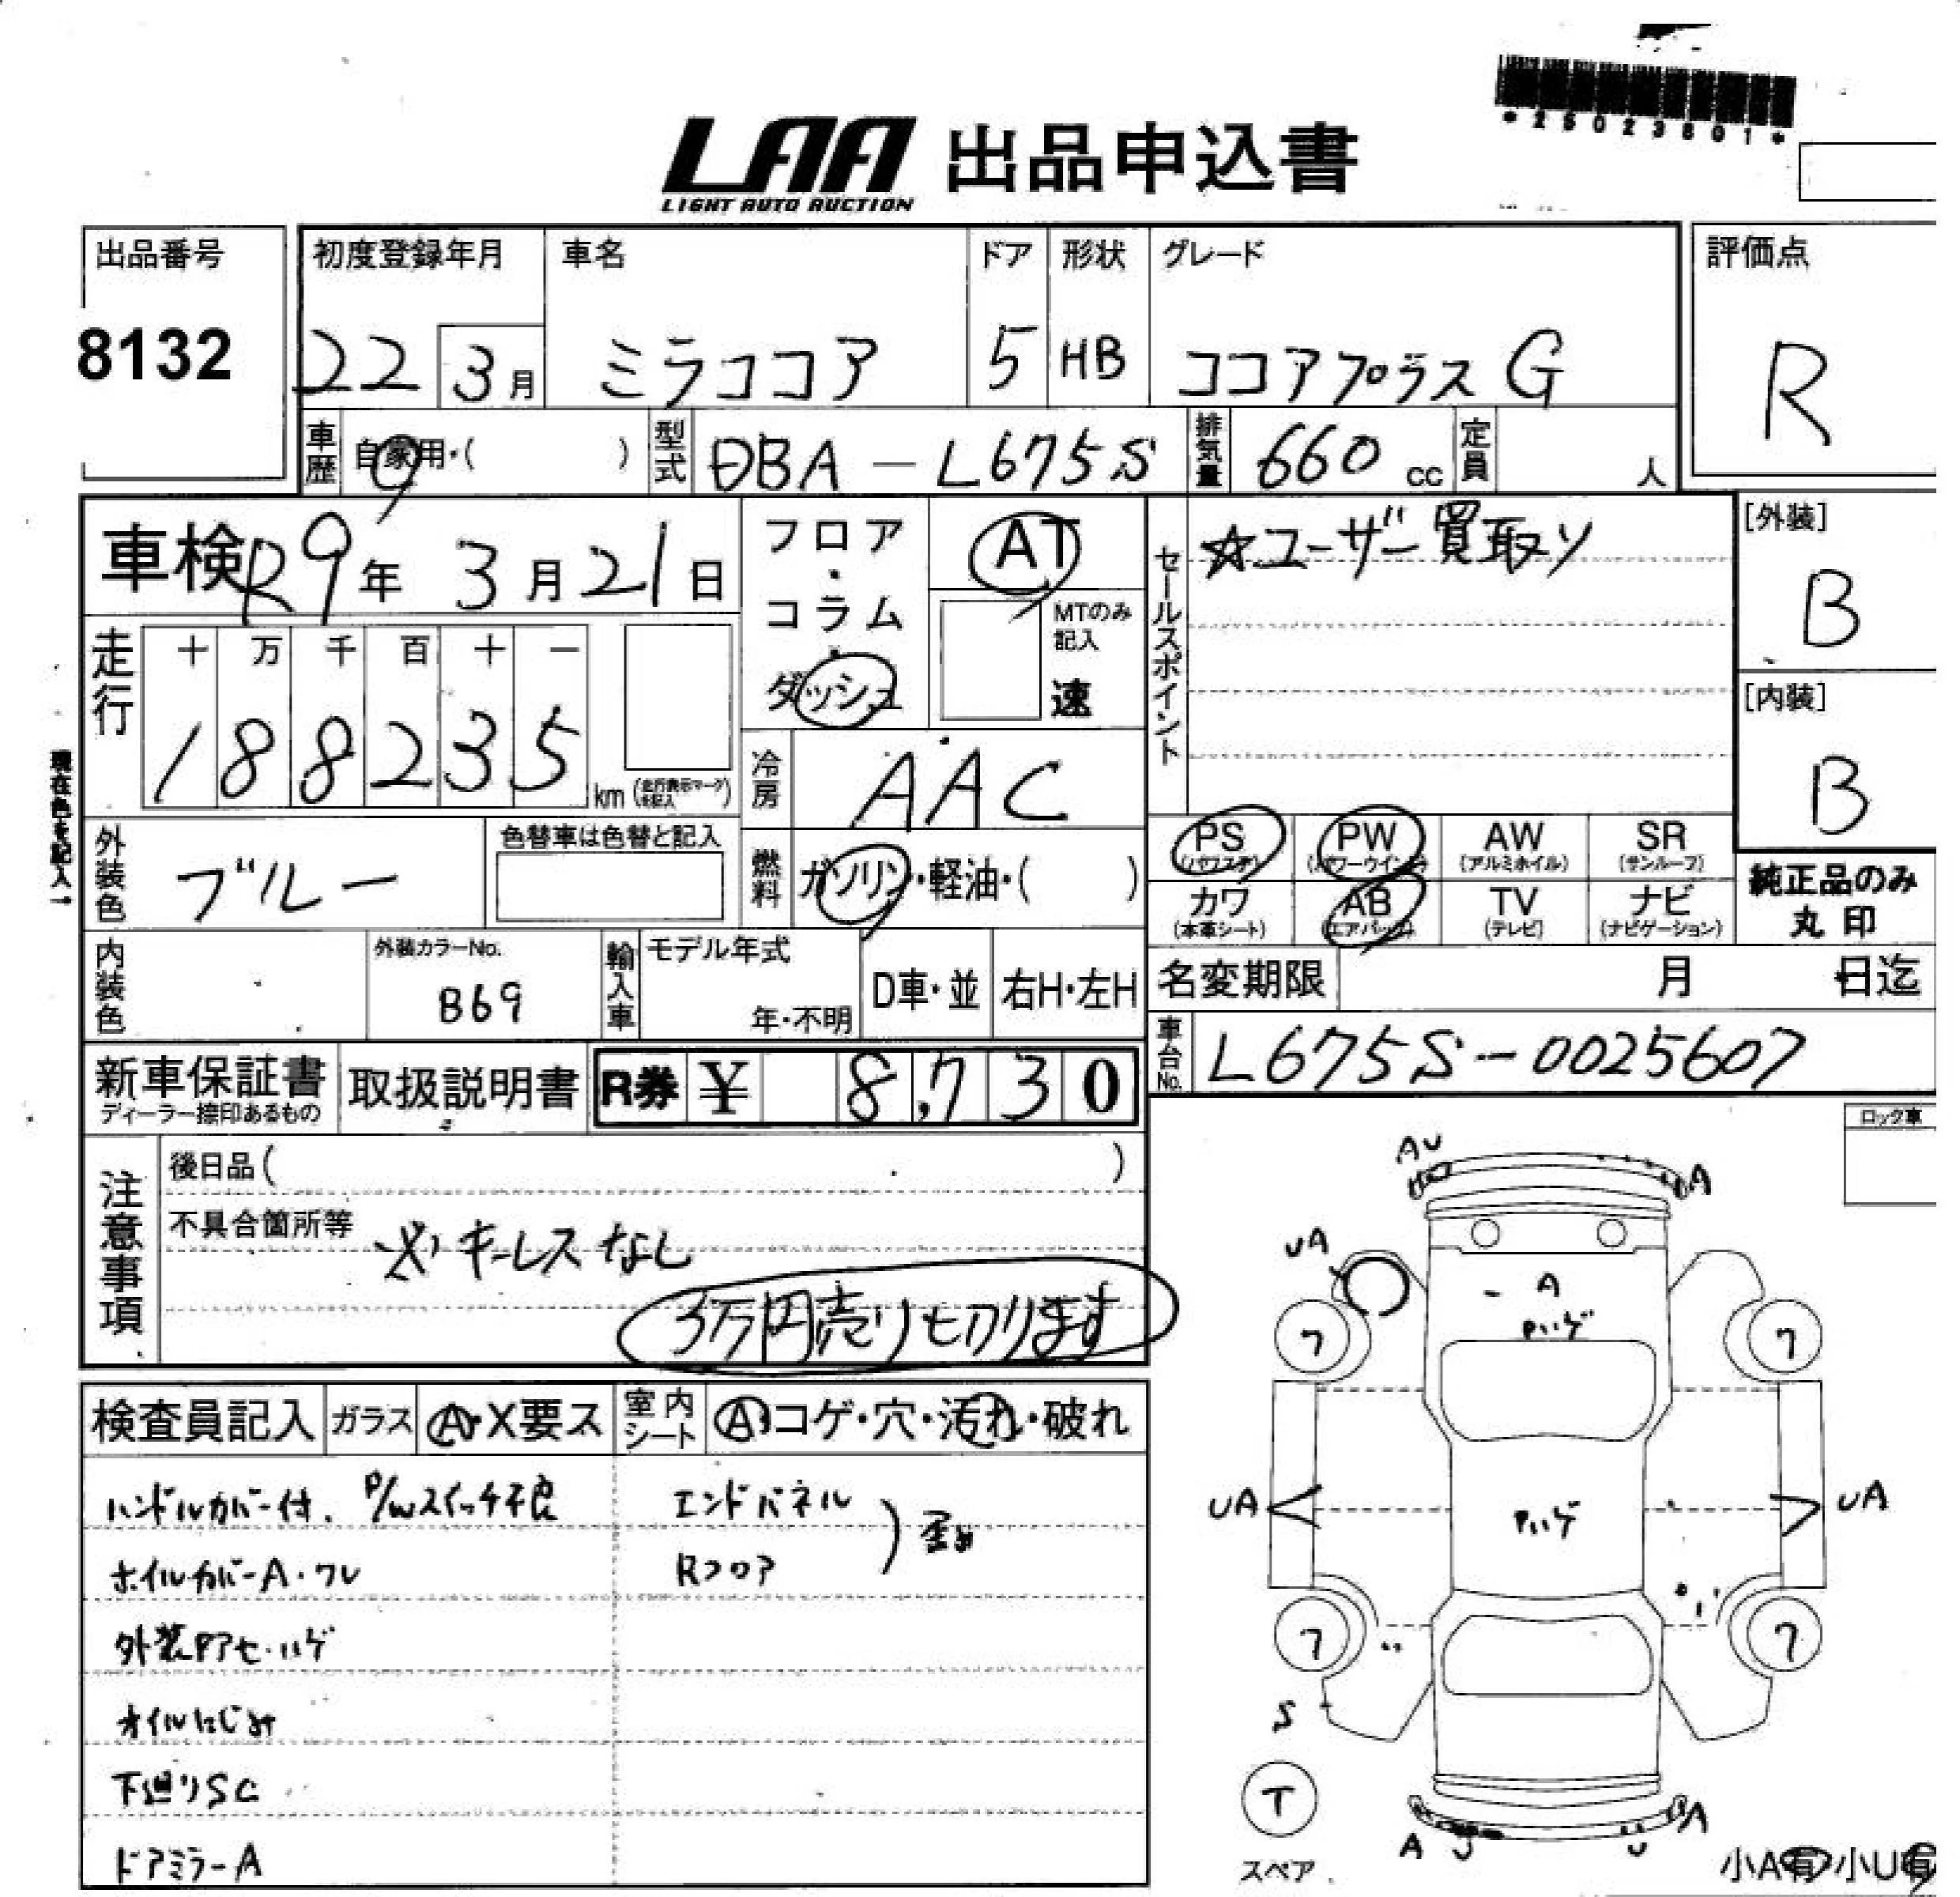 *25023801*
LAA 出品申込書
LIGHT AUTO AUCTION
出品番号
8132
初度登録年月
22 3月
車名
ミラココア
ドア
5
形状
HB
グレード
ココアプラスG
評価点
R
車歴 自家用・( )
型式 DBA-L675S
排気量 660 cc
定員 人
車検 R9年 3月21日
フロア・コラム・ダッシュ
AT
MTのみ記入
速
セールスポイント
☆ユーザー買取り
[外装]
B
[内装]
B
走行
十 万 千 百 十 一
1 8 8 2 3 5 km (走行表示マークを記入)
現在色を記入→
冷房 AAC
外装色 ブルー
色替車は色替と記入
燃料 ガソリン・軽油・( )
PS (パワステ) PW (パワーウインドウ) AW (アルミホイル) SR (サンルーフ)
カワ (本革シート) AB (エアバッグ) TV (テレビ) ナビ (ナビゲーション)
純正品のみ
丸印
内装色
外装カラーNo.
B69
輸入車
モデル年式
年・不明
D車・並
右H・左H
名変期限 月 日迄
車台No. L675S-0025607
新車保証書
ディーラー捺印あるもの
取扱説明書
R券 ¥ 8,730
ロック車
注意事項
後日品( )
不具合箇所等 キーレスなし
3万円売り切ります
検査員記入 ガラス A・X要ス 室内シート A・コゲ・穴・汚れ・破れ
ハンドルカバー付. P/Wスイッチ不良
エンドパネル
ホイルカバーA・ワレ
Rフロア
外装Pアセ・ハゲ
オイルにじみ
下廻りSC
ドアミラーA
AU A
UA
A
Pハゲ
ワ ワ
UA UA
Pハゲ
ワ ワ
S
T
スペア
A U U A
小A有 小U有